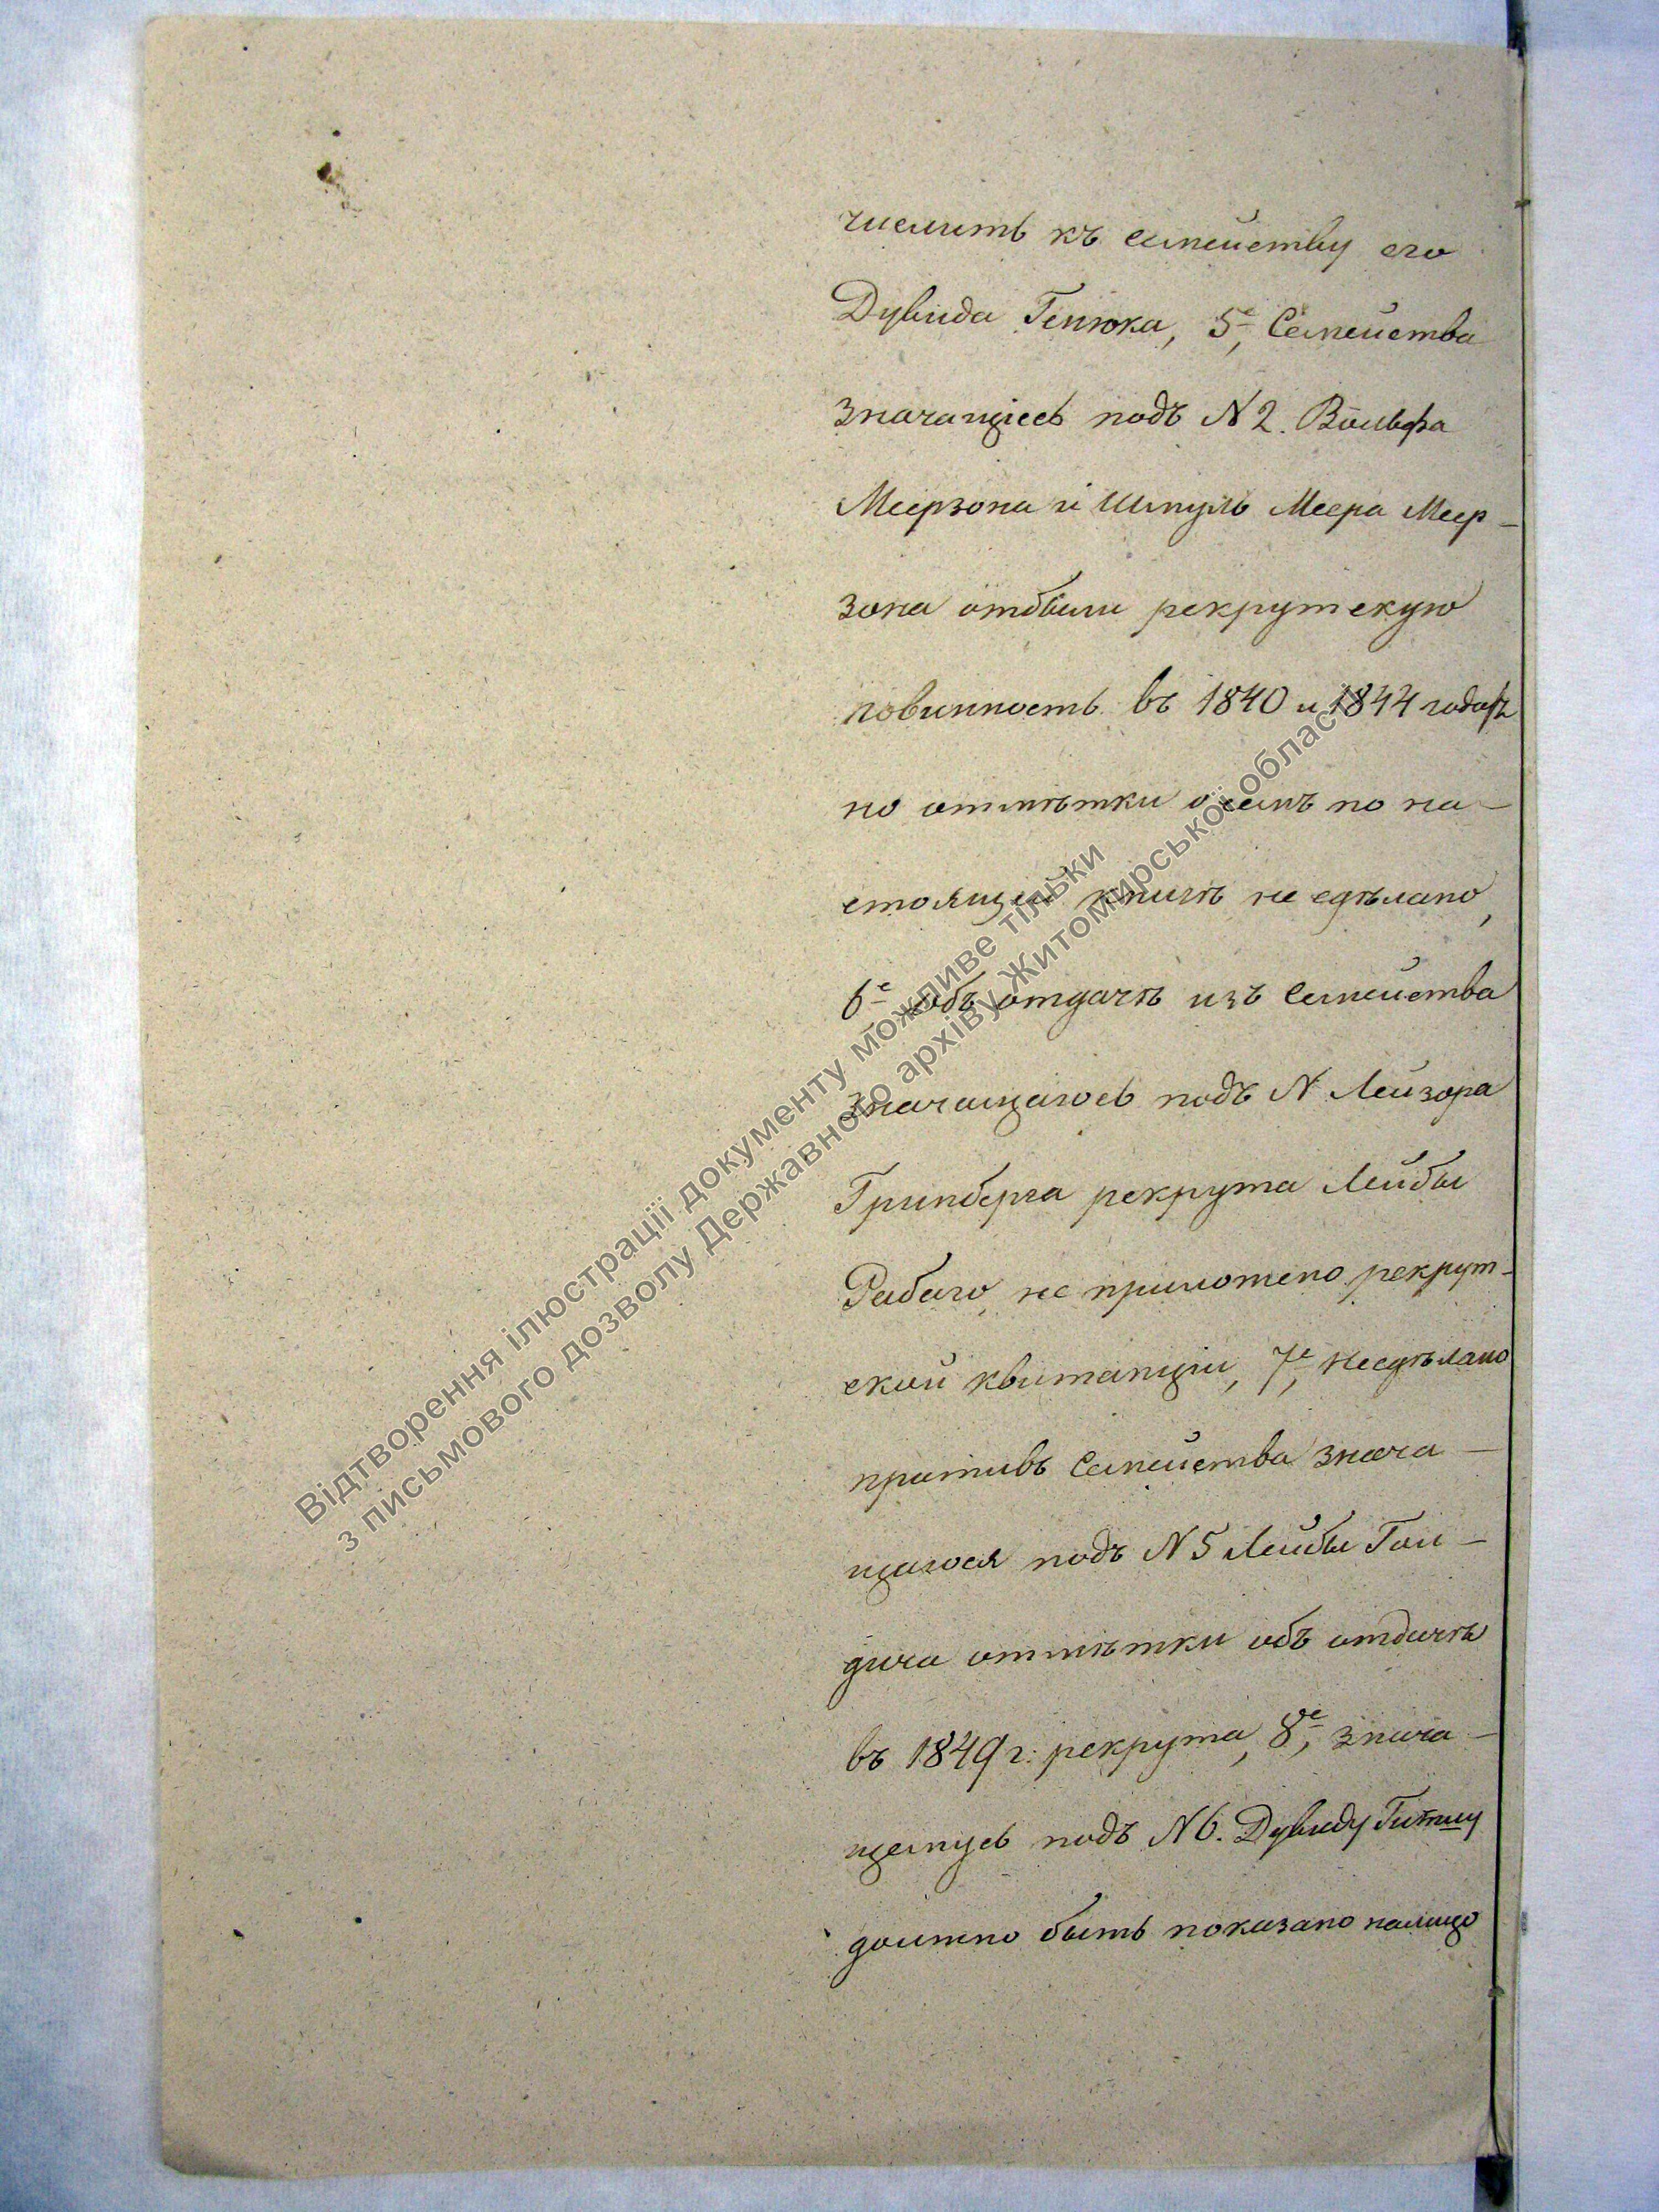 числить къ семейству его
Дувида Генюка, 5е, Семейства
значащіесь подъ N 2. Вольфа
Меерзона и Шмуль Меера Меер-
зона отбыли рекрутскую
повинность въ 1840 и 1844 годахъ
но отмѣтки о семъ по на-
стоящей книгѣ не сдѣлано,
6е объ отдачѣ изъ Семейства
значащагось подъ N Лейзора
Гринберга рекрута Лейбы
Рабаго, не приложено рекрут-
ской квитанціи, 7е, не сдѣлано
противъ Семейства знача-
щагося подъ N 5 Лейбы Гол-
дича отмѣтки объ отдачѣ
въ 1849 г: рекрута, 8е, знача-
щемусь подъ N 6. Дувиду
должно быть показано налицо
Відтворення ілюстрації документу можливе тільки
з письмового дозволу Державного архіву Житомирської області